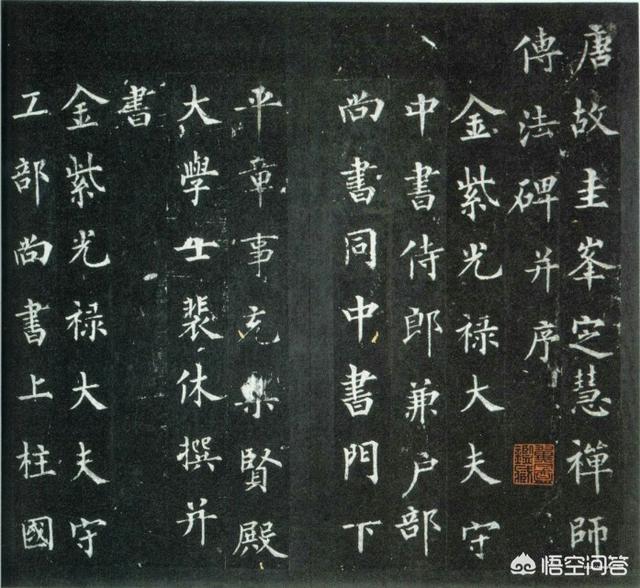 唐故圭峯定慧禪師
傳法碑并序
金紫光禄大夫守
中書侍郎兼户部
尚書同中書門下
平章事充集賢殿
大學士裴休撰并
書
金紫光禄大夫守
工部尚書上柱國
悟空问答